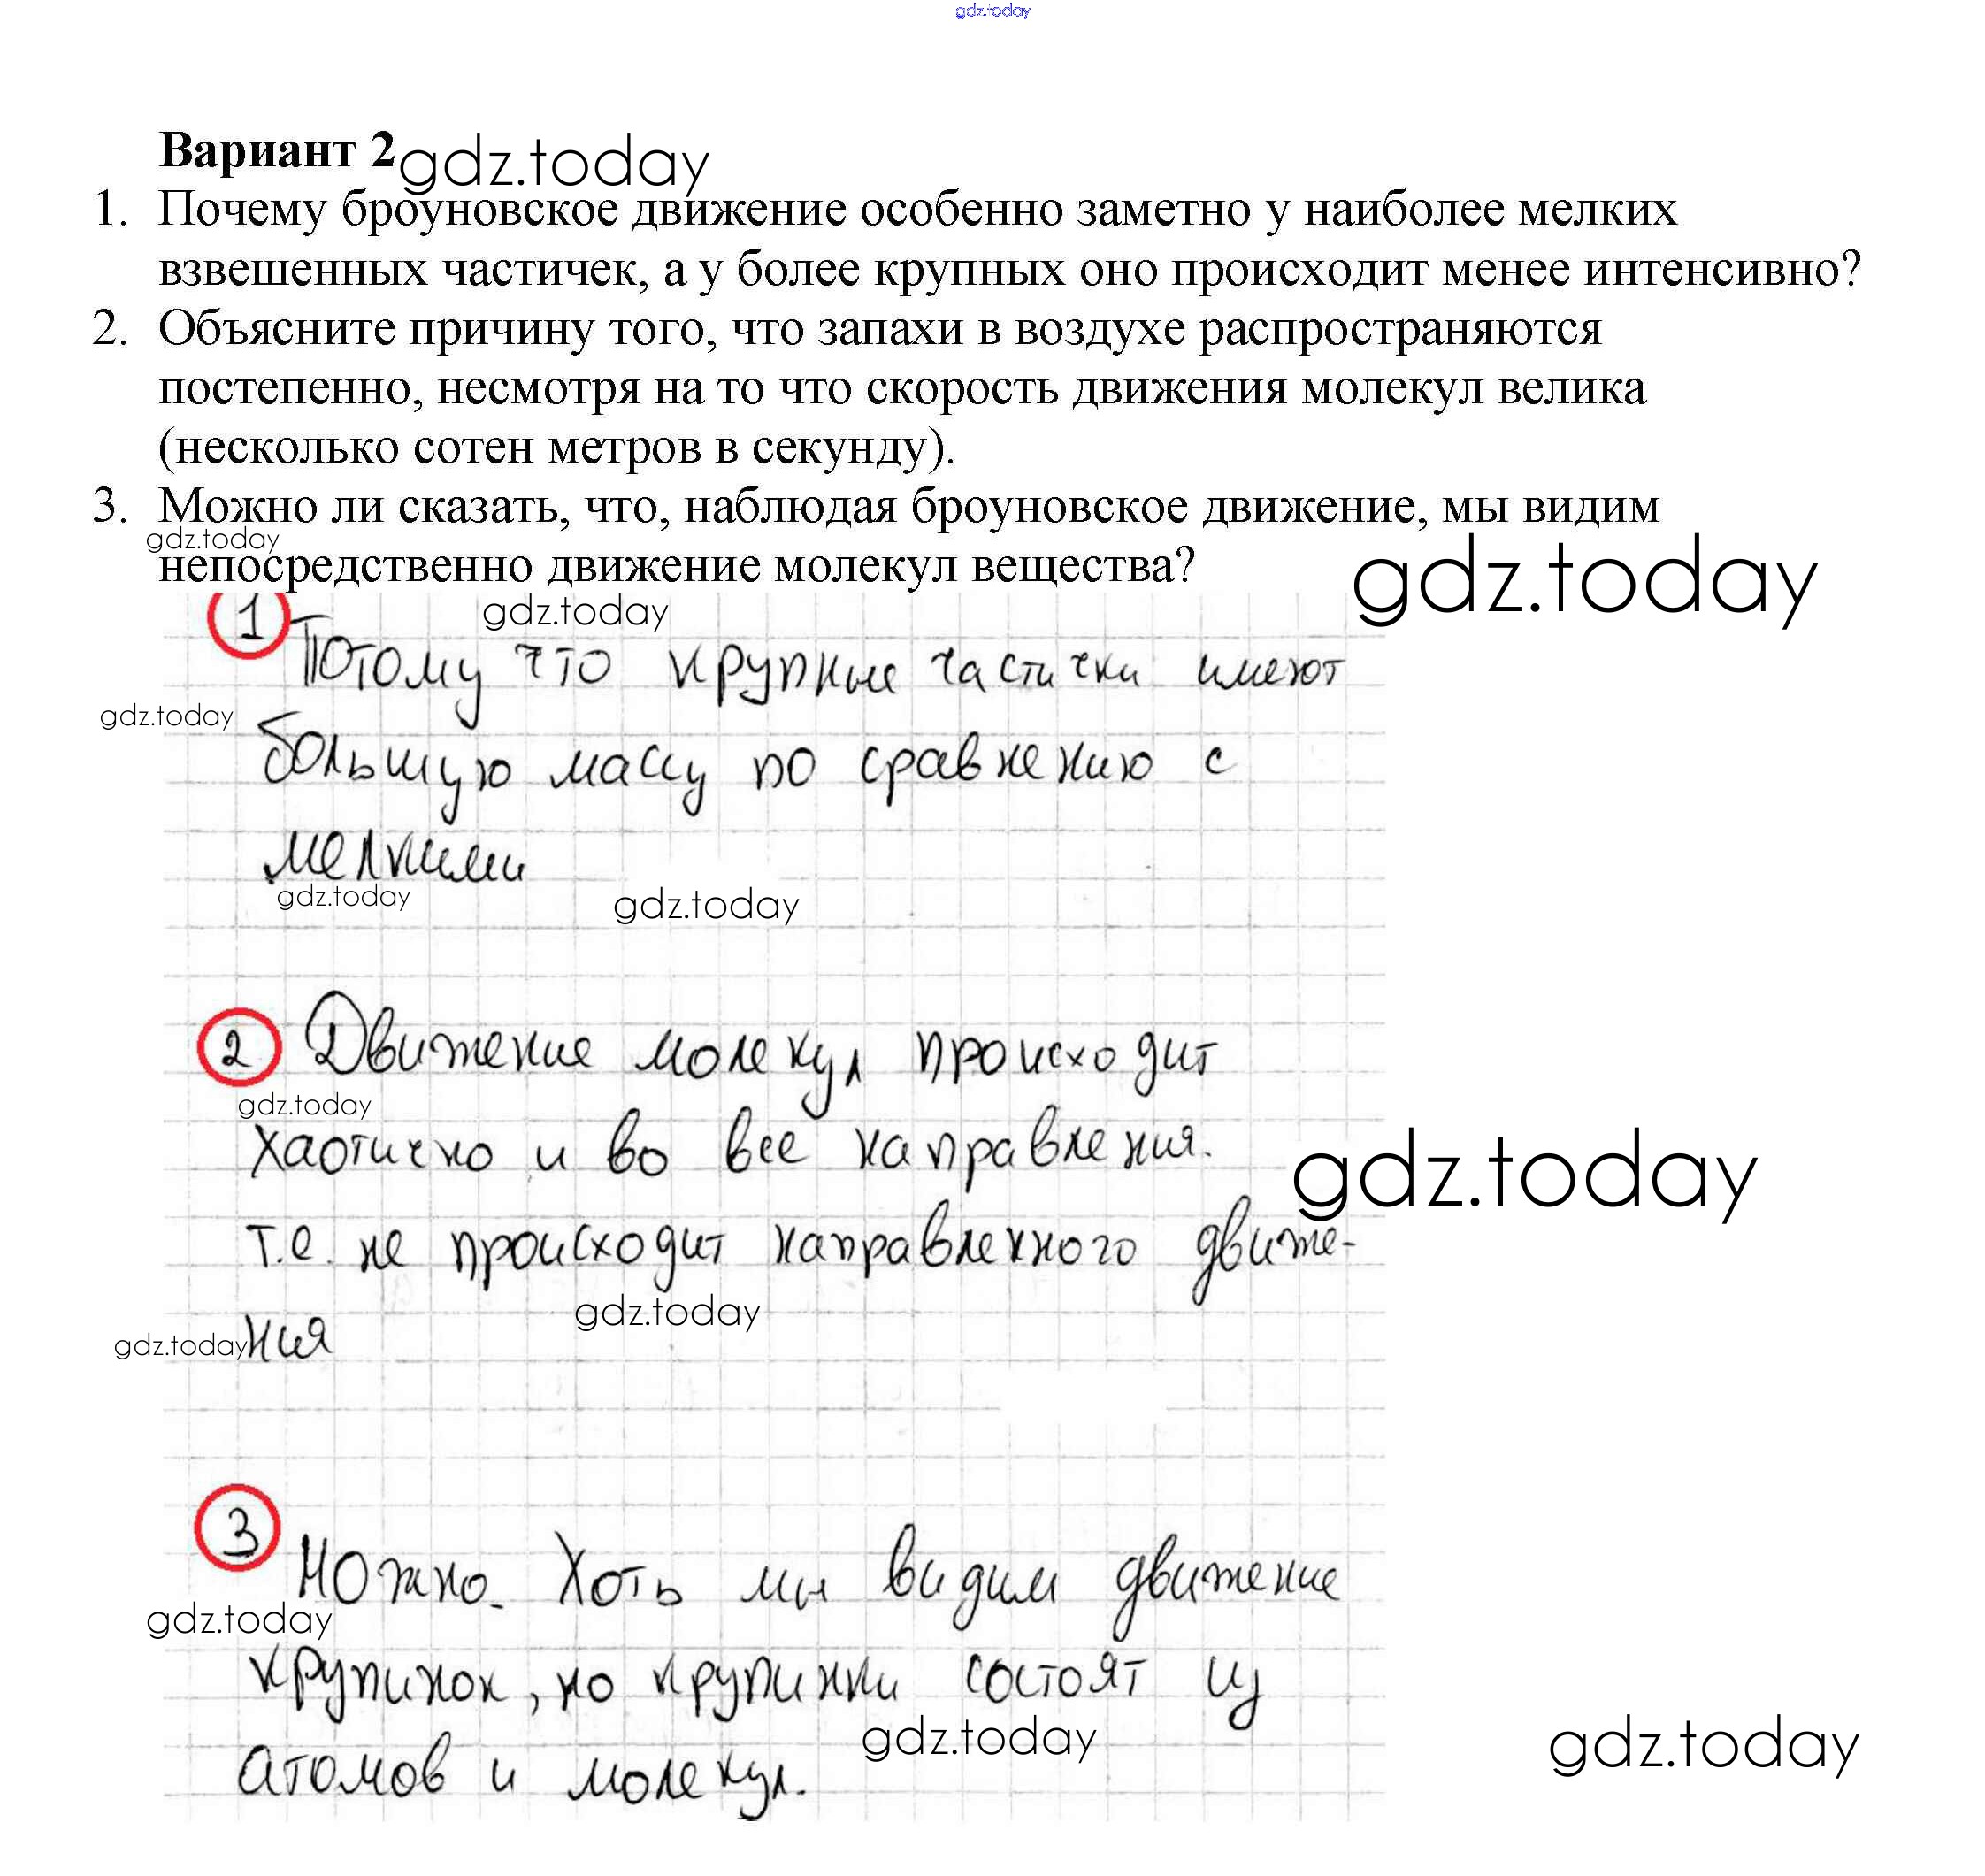 gdz.today
Вариант 2 gdz.today
1. Почему броуновское движение особенно заметно у наиболее мелких
взвешенных частичек, а у более крупных оно происходит менее интенсивно?
2. Объясните причину того, что запахи в воздухе распространяются
постепенно, несмотря на то что скорость движения молекул велика
(несколько сотен метров в секунду).
3. Можно ли сказать, что, наблюдая броуновское движение, мы видим
gdz.today
непосредственно движение молекул вещества?
gdz.today
gdz.today
1 Потому что крупные частички имеют
gdz.today
большую массу по сравнению с
мелкими
gdz.today
gdz.today
2 Движение молекул происходит
gdz.today
хаотично и во все направления.
gdz.today
т.е. не происходит направленного движе-
gdz.today
gdz.today ния
3 Можно. Хоть мы видим движение
gdz.today
крупинок, но крупинки состоят из
gdz.today
gdz.today
атомов и молекул.